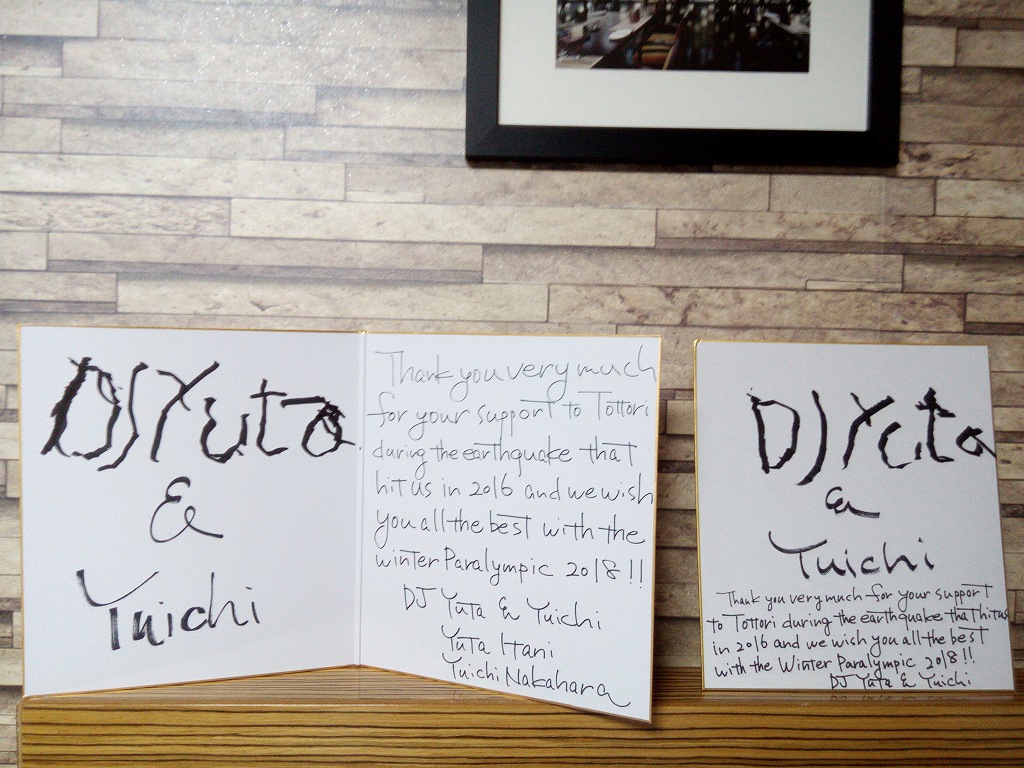 DJ Yuta
&
Yuichi
Thank you very much
for your support to Tottori
during the earthquake that
hit us in 2016 and we wish
you all the best with the
winter Paralympic 2018!!
DJ Yuta & Yuichi
Yuta Itani
Yuichi Nakahara
DJ Yuta
&
Yuichi
Thank you very much for your support
to Tottori during the earthquake that hit us
in 2016 and we wish you all the best
with the Winter Paralympic 2018!!
DJ Yuta & Yuichi